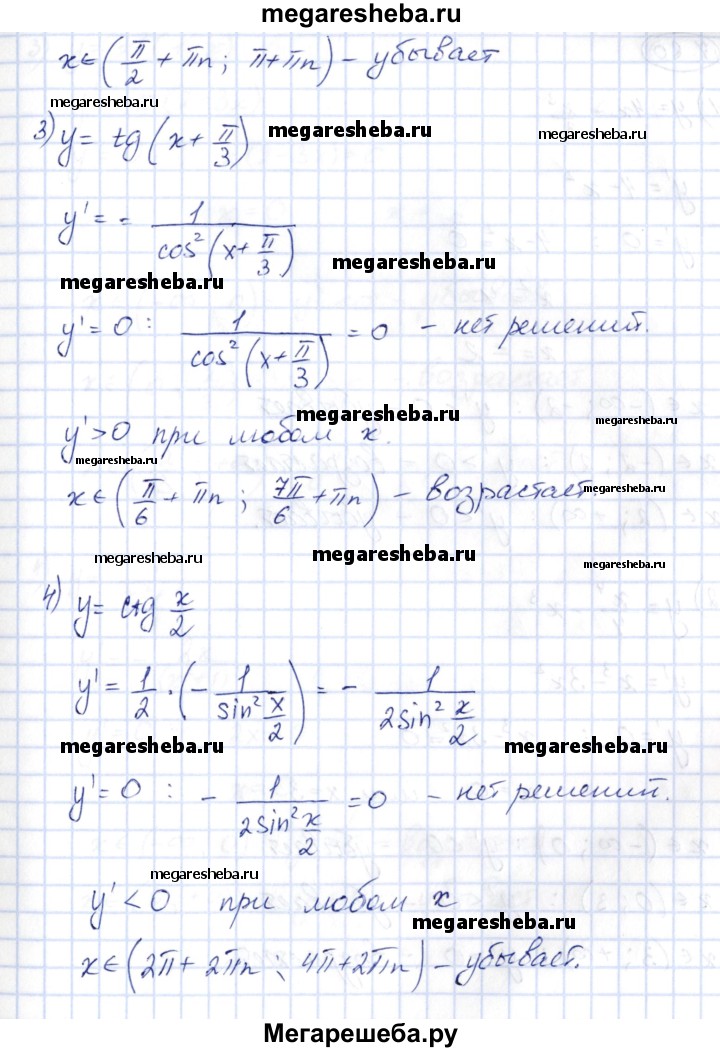 megaresheba.ru
x∈(π/2 + πn; π+πn) – убывает
megaresheba.ru
3) y = tg(x + π/3)
megaresheba.ru
megaresheba.ru
y' = - 1/cos²(x+π/3)
megaresheba.ru
megaresheba.ru
y'=0: 1/cos²(x+π/3) = 0 – нет решений.
megaresheba.ru
megaresheba.ru
y'>0 при любом x.
megaresheba.ru
megaresheba.ru
x∈(π/6 + πn; 7π/6 + πn) – возрастает.
megaresheba.ru
megaresheba.ru
megaresheba.ru
4) y = ctg x/2
y' = 1/2 · (- 1/sin² x/2) = - 1/2sin² x/2
megaresheba.ru
megaresheba.ru
y'=0: - 1/2sin² x/2 = 0 – нет решений.
megaresheba.ru
y'<0 при любом x
megaresheba.ru
x∈(2π+2πn; 4π+2πn) – убывает.
Мегарешеба.ру